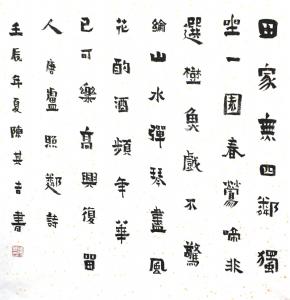 田家無四鄰獨
坐一園春鶯啼非
選樹魚戲不驚
綸山水彈琴盡風
花酌酒頻年華
已可樂高興復留
人唐盧照鄰詩
壬辰年夏陳英吉書